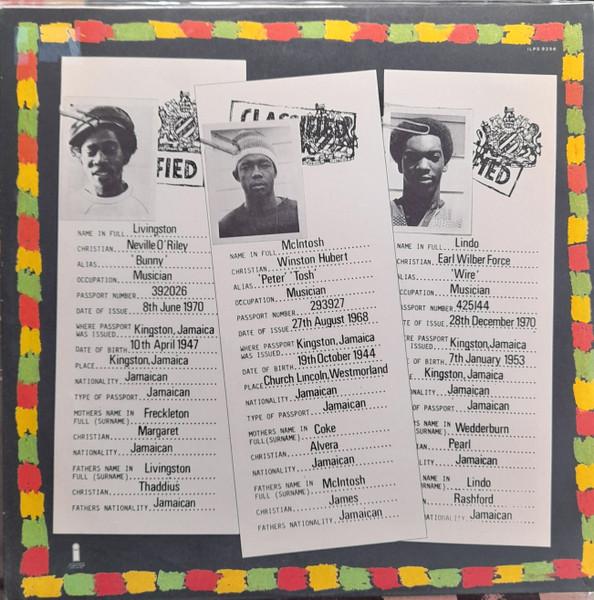 ILPS 9256
FIED
NAME IN FULL Livingston
CHRISTIAN Neville O'Riley
ALIAS 'Bunny'
OCCUPATION Musician
PASSPORT NUMBER 392026
DATE OF ISSUE 8th June 1970
WHERE PASSPORT
WAS ISSUED Kingston, Jamaica
DATE OF BIRTH 10th April 1947
PLACE Kingston, Jamaica
NATIONALITY Jamaican
TYPE OF PASSPORT Jamaican
MOTHERS NAME IN
FULL (SURNAME) Freckleton
CHRISTIAN Margaret
NATIONALITY Jamaican
FATHERS NAME IN
FULL (SURNAME) Livingston
CHRISTIAN Thaddius
FATHERS NATIONALITY Jamaican
NAME IN FULL McIntosh
CHRISTIAN Winston Hubert
ALIAS 'Peter Tosh'
OCCUPATION Musician
PASSPORT NUMBER 293927
DATE OF ISSUE 27th August 1968
WHERE PASSPORT
WAS ISSUED Kingston, Jamaica
DATE OF BIRTH 19th October 1944
PLACE Church Lincoln, Westmorland
NATIONALITY Jamaican
TYPE OF PASSPORT Jamaican
MOTHERS NAME IN
FULL (SURNAME) Coke
CHRISTIAN Alvera
NATIONALITY Jamaican
FATHERS NAME IN
FULL (SURNAME) McIntosh
CHRISTIAN James
FATHERS NATIONALITY Jamaican
IED
NAME IN FULL Lindo
CHRISTIAN Earl Wilber Force
ALIAS 'Wire'
OCCUPATION Musician
PASSPORT NUMBER 425144
DATE OF ISSUE 28th December 1970
RE PASSPORT
ISSUED Kingston, Jamaica
OF BIRTH 7th January 1953
Kingston, Jamaica
NALITY Jamaican
OF PASSPORT Jamaican
S NAME IN
URNAME) Wedderburn
AN Pearl
LITY Jamaican
NAME IN
RNAME) Lindo
N Rashford
ATIONALITY Jamaican